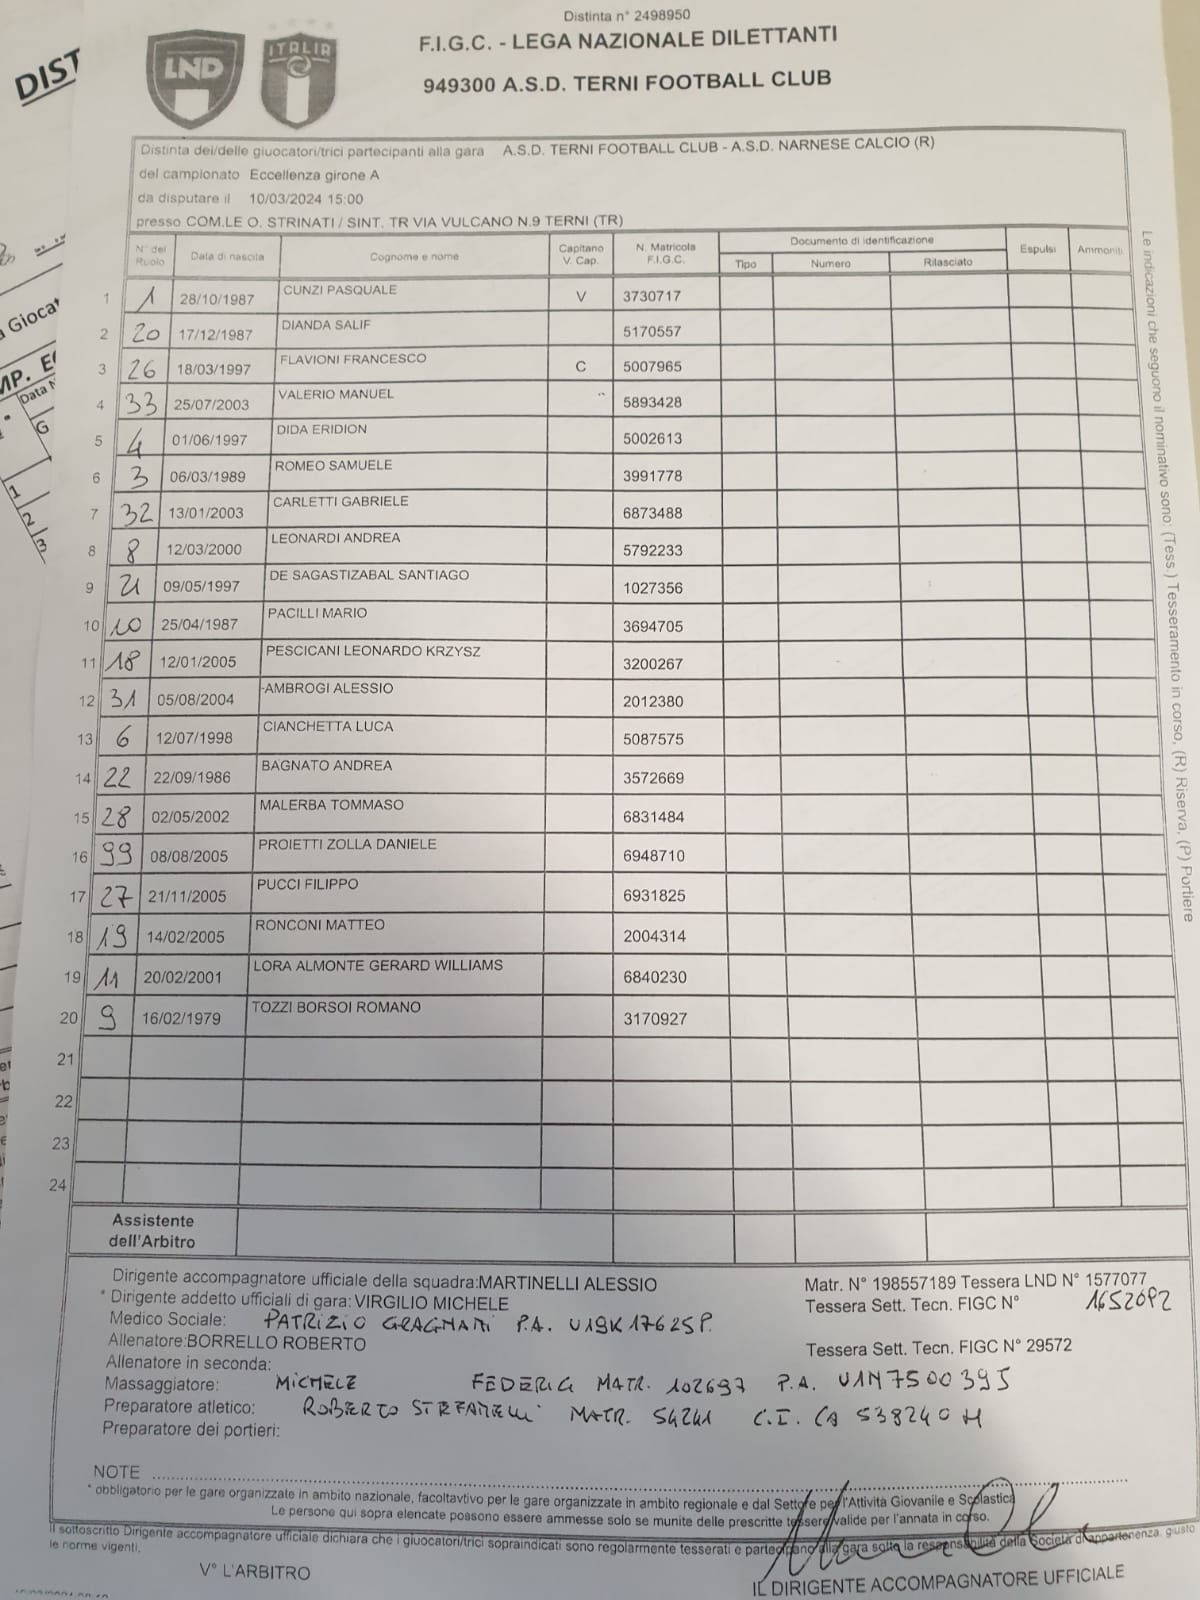 Distinta n° 2498950
F.I.G.C. - LEGA NAZIONALE DILETTANTI
949300 A.S.D. TERNI FOOTBALL CLUB
LND
ITALIA
DIST
Distinta dei/delle giuocatori/trici partecipanti alla gara A.S.D. TERNI FOOTBALL CLUB - A.S.D. NARNESE CALCIO (R)
del campionato Eccellenza girone A
da disputare il 10/03/2024 15:00
presso COM.LE O. STRINATI / SINT. TR VIA VULCANO N.9 TERNI (TR)
N° del Ruolo Data di nascita Cognome e nome Capitano V. Cap. N. Matricola F.I.G.C. Documento di identificazione Espulsi Ammoniti
Tipo Numero Rilasciato
1 1 28/10/1987 CUNZI PASQUALE V 3730717
2 20 17/12/1987 DIANDA SALIF 5170557
3 26 18/03/1997 FLAVIONI FRANCESCO C 5007965
4 33 25/07/2003 VALERIO MANUEL 5893428
5 4 01/06/1997 DIDA ERIDION 5002613
6 3 06/03/1989 ROMEO SAMUELE 3991778
7 32 13/01/2003 CARLETTI GABRIELE 6873488
8 8 12/03/2000 LEONARDI ANDREA 5792233
9 21 09/05/1997 DE SAGASTIZABAL SANTIAGO 1027356
10 10 25/04/1987 PACILLI MARIO 3694705
11 18 12/01/2005 PESCICANI LEONARDO KRZYSZ 3200267
12 31 05/08/2004 AMBROGI ALESSIO 2012380
13 6 12/07/1998 CIANCHETTA LUCA 5087575
14 22 22/09/1986 BAGNATO ANDREA 3572669
15 28 02/05/2002 MALERBA TOMMASO 6831484
16 99 08/08/2005 PROIETTI ZOLLA DANIELE 6948710
17 27 21/11/2005 PUCCI FILIPPO 6931825
18 19 14/02/2005 RONCONI MATTEO 2004314
19 11 20/02/2001 LORA ALMONTE GERARD WILLIAMS 6840230
20 9 16/02/1979 TOZZI BORSOI ROMANO 3170927
21
22
23
24
Le indicazioni che seguono il nominativo sono: (Tess.) Tesseramento in corso, (R) Riserva, (P) Portiere
Assistente
dell'Arbitro
Dirigente accompagnatore ufficiale della squadra:MARTINELLI ALESSIO Matr. N° 198557189 Tessera LND N° 1577077
* Dirigente addetto ufficiali di gara: VIRGILIO MICHELE Tessera Sett. Tecn. FIGC N° 1652092
Medico Sociale: PATRIZIO GRAGNANI P.A. U19K17625P.
Allenatore:BORRELLO ROBERTO Tessera Sett. Tecn. FIGC N° 29572
Allenatore in seconda:
Massaggiatore: MICHELE FEDERICI MATR. 102697 P.A. U1N7500395
Preparatore atletico: ROBERTO STEFANELLI MATR. 54241 C.I. CA 538240 H
Preparatore dei portieri:
NOTE
* obbligatorio per le gare organizzate in ambito nazionale, facoltavtivo per le gare organizzate in ambito regionale e dal Settore per l'Attività Giovanile e Scolastica
Le persone qui sopra elencate possono essere ammesse solo se munite delle prescritte tessere valide per l'annata in corso.
Il sottoscritto Dirigente accompagnatore ufficiale dichiara che i giuocatori/trici sopraindicati sono regolarmente tesserati e partecipano alla gara sotto la responsabilità della Società di appartenenza, giusto
le norme vigenti.
V° L'ARBITRO
IL DIRIGENTE ACCOMPAGNATORE UFFICIALE